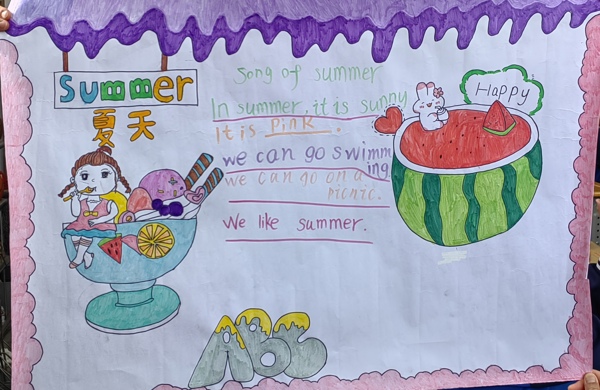 Summer
夏天
Song of summer
In summer, it is sunny
It is Pink.
we can go swimm
ing.
we can go on a
picnic.
We like summer.
Happy
ABC